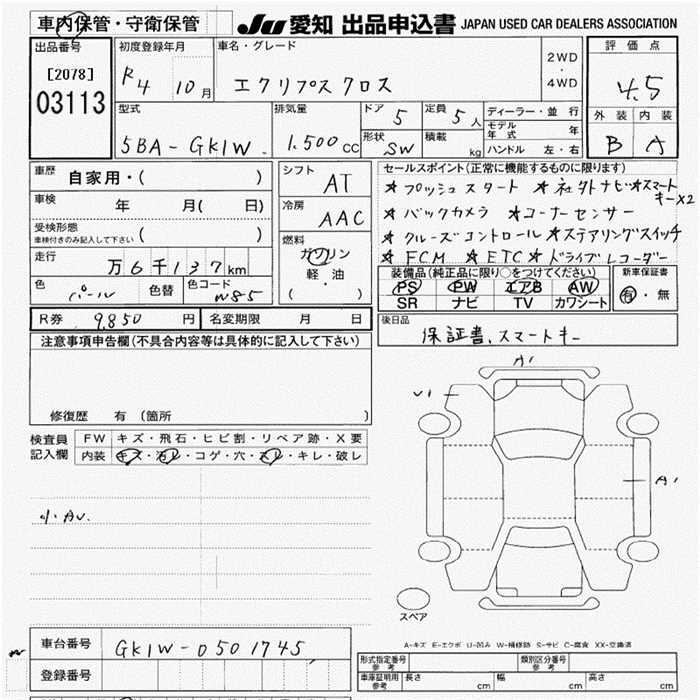 車内保管・守衛保管
JU 愛知 出品申込書 JAPAN USED CAR DEALERS ASSOCIATION
出品番号
[2078]
03113
初度登録年月
R4 10月
車名・グレード
エクリプス クロス
2WD
・
4WD
評価点
4.5
外装 内装
B A
型式
5BA-GK1W
排気量
1.500cc
ドア 5
定員 5人
形状 SW
積載 kg
ディーラー・並行
モデル年式 年
ハンドル 左・右
車歴 自家用・( )
車検 年 月( 日)
受検形態
車検付きのみ記入して下さい ( )
走行 万6千137km
色 パール 色替 色コード W85
シフト AT
冷房 AAC
燃料
ガソリン
軽・油
( )
セールスポイント(正常に機能するものに限ります)
★プッシュスタート ★社外ナビ ★スマートキー×2
★バックカメラ ★コーナーセンサー
★クルーズコントロール ★ステアリングスイッチ
★FCM ★ETC ★ドライブレコーダー
装備品(純正品に限り○をつけてください)
PS PW エアB AW
SR ナビ TV カワシート
新車保証書
有・無
R券 9,850円 名変期限 月 日
後日品
保証書、スマートキー
注意事項申告欄(不具合内容等は具体的に記入して下さい)
修復歴 有(箇所
検査員記入欄
FW キズ・飛石・ヒビ割・リペア跡・X要
内装 キズ・汚レ・コゲ・穴・スレ・キレ・破レ
小AU.
A1
U1
A1
スペア
A-キズ E-エクボ U-凹み W-補修跡 S-サビ C-腐食 XX-交換済
車台番号 GK1W-0501745
登録番号
形式指定番号 参考
類別区分番号 参考
車庫証明用 参考 長さ cm 幅 cm 高さ cm